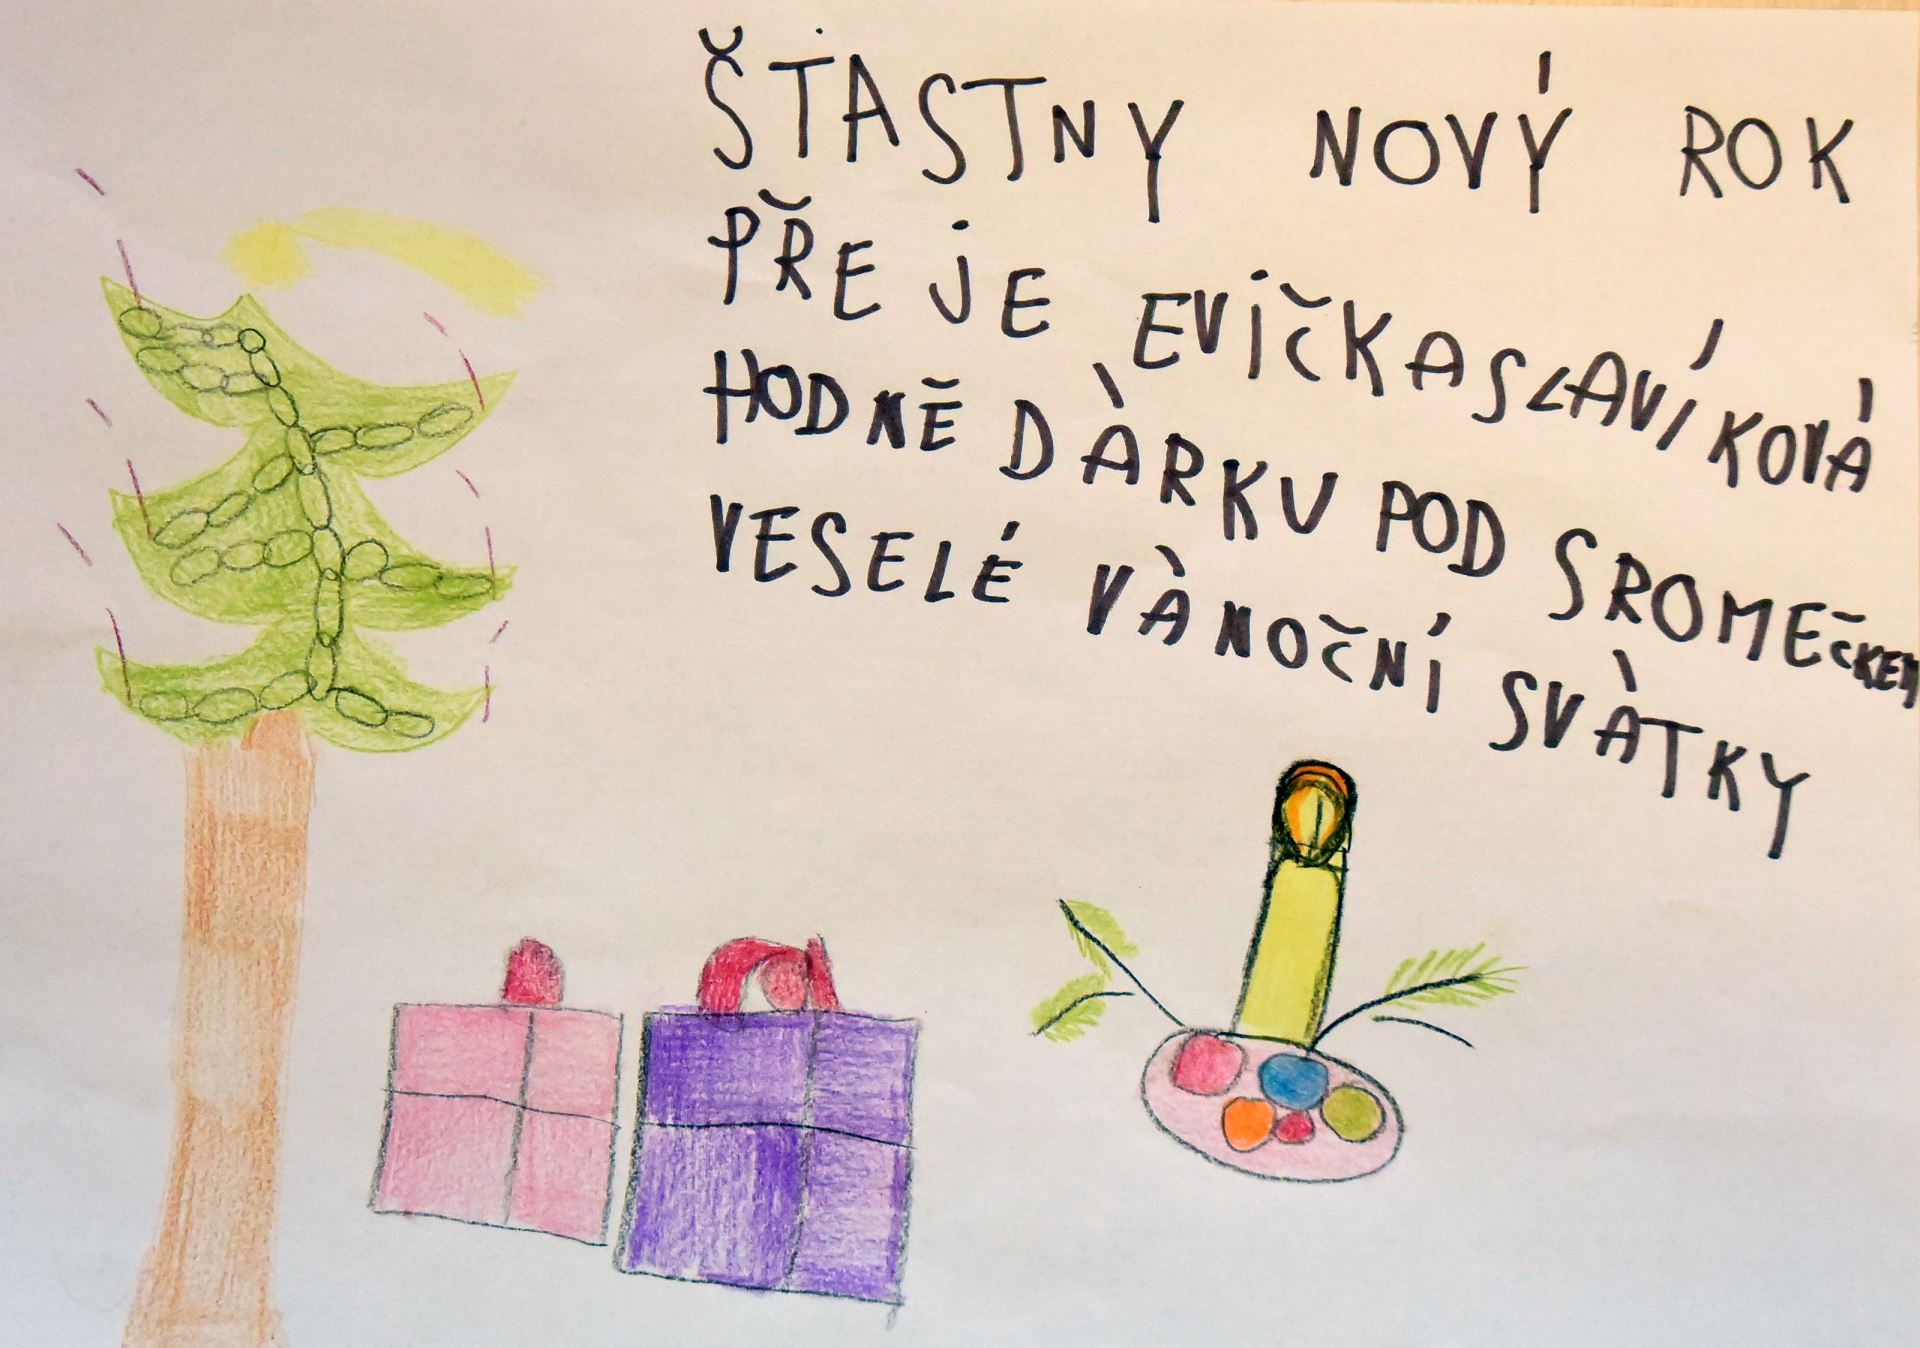 ŠTASTNY NOVÝ ROK
PŘEJE EVIČKA SLAVÍKOVÁ
HODNĚ DÀRKU POD SROMEČKEM
VESELÉ VÀNOČNÍ SVÀTKY